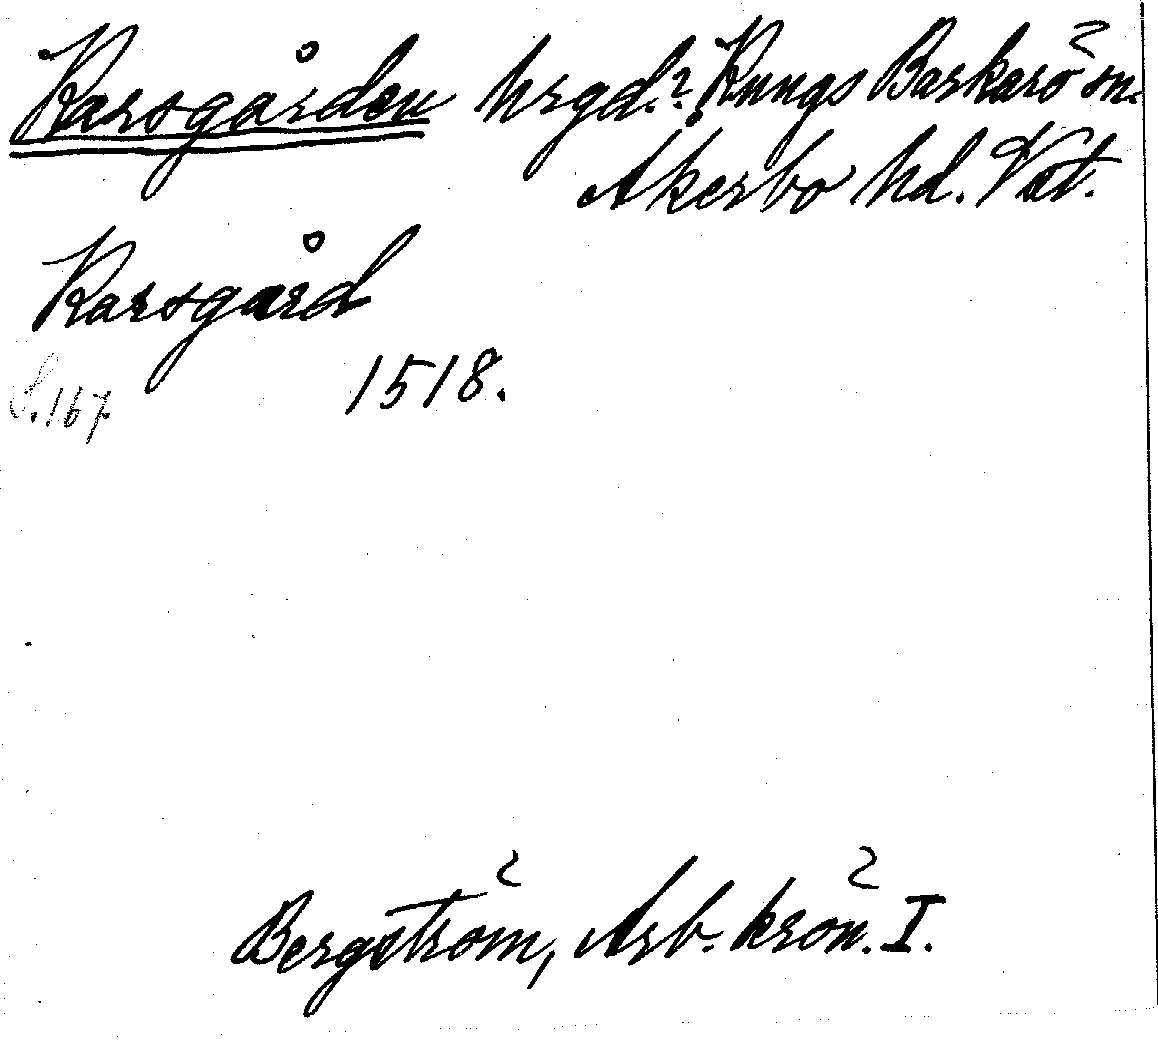 Karsgården hrgd.? Kungs Barkarö sn.
Åkerbo hd. Vstl.
Karsgård
S. 167. 1518.
Bergström, Arb. krön. I.